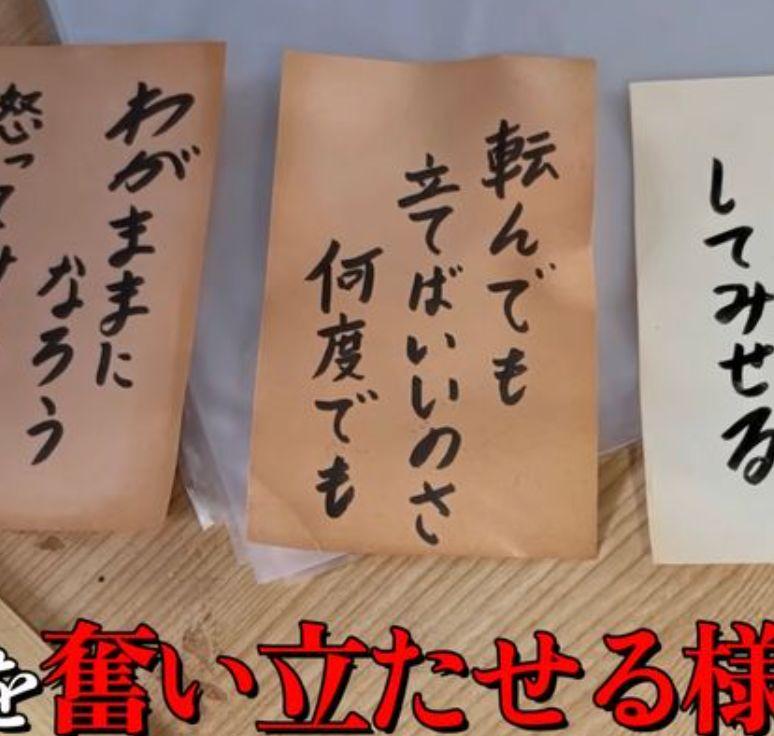 してみせる
転んでも
立てばいいのさ
何度でも
わがままに
なろう
怒って
を奮い立たせる様